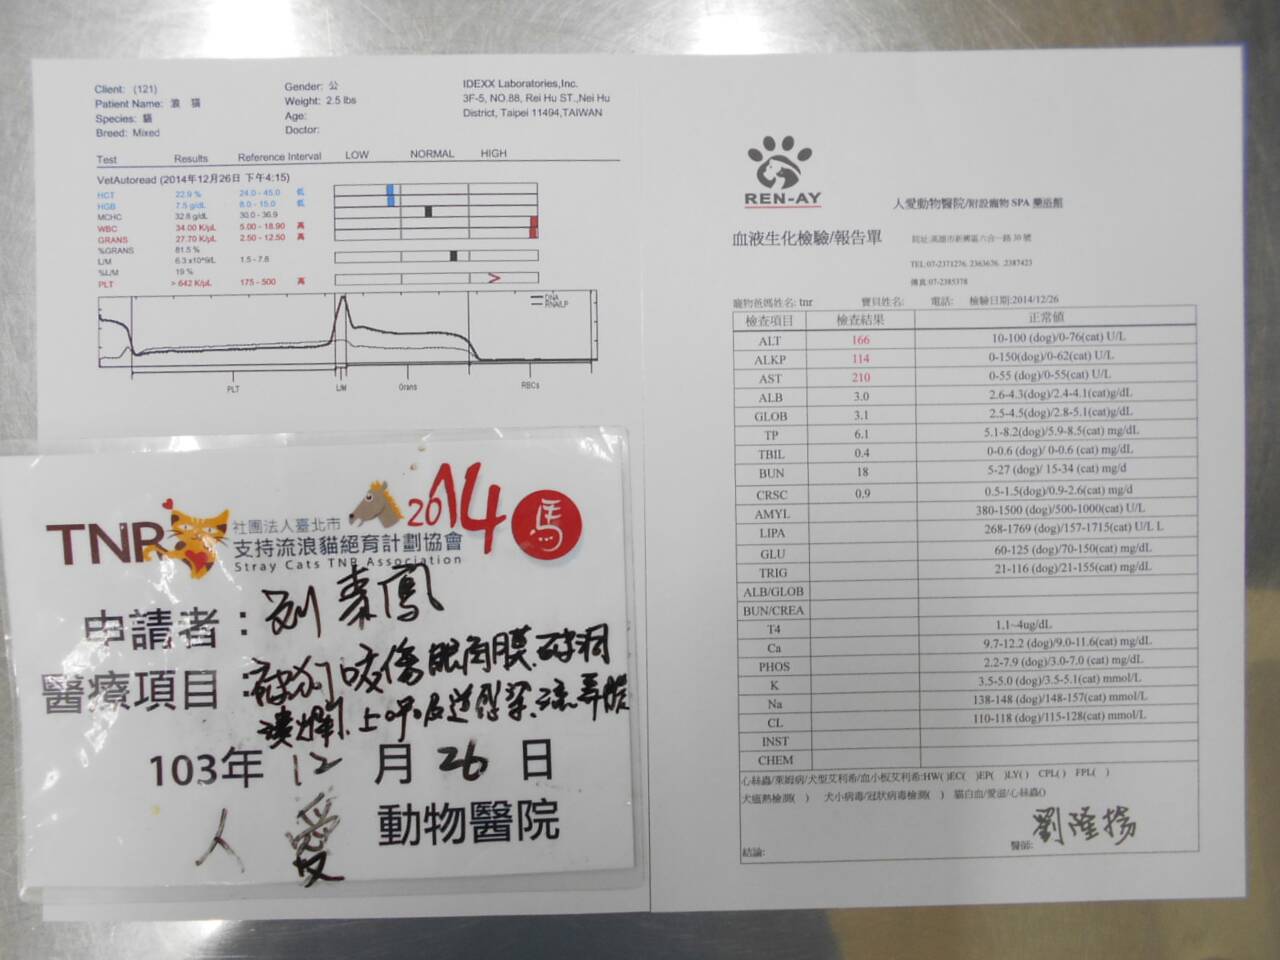 Client: (121)
Patient Name: 浪 貓
Species: 貓
Breed: Mixed
Gender: 公
Weight: 2.5 lbs
Age:
Doctor:
IDEXX Laboratories,Inc.
3F-5, NO.88, Rei Hu ST.,Nei Hu
District, Taipei 11494,TAIWAN
Test Results Reference Interval LOW NORMAL HIGH
VetAutoread (2014年12月26日 下午4:15)
HCT 22.9 % 24.0 - 45.0 低
HGB 7.5 g/dL 8.0 - 15.0 低
MCHC 32.8 g/dL 30.0 - 36.9
WBC 34.00 K/µL 5.00 - 18.90 高
GRANS 27.70 K/µL 2.50 - 12.50 高
%GRANS 81.5 %
L/M 6.3 x10^9/L 1.5 - 7.8
%L/M 19 %
PLT > 642 K/µL 175 - 500 高 >
DNA
RNA/LP
PLT L/M Grans RBCs
TNR 社團法人臺北市
支持流浪貓絕育計劃協會
Stray Cats TNR Association
2014 馬
申請者:劉素鳳
醫療項目:被狗咬傷眼角膜破洞
潰爛、上呼吸道感染、流鼻膿
103年 12 月 26 日
人 愛 動物醫院
REN-AY
人愛動物醫院/附設寵物 SPA 藥浴館
血液生化檢驗/報告單 院址:高雄市新興區六合一路 30 號
TEL:07-2371276. 2363676. .2387423
傳真:07-2385378
寵物爸媽姓名: tnr 寶貝姓名: 電話: 檢驗日期:2014/12/26
檢查項目 檢查結果 正常値
ALT 166 10-100 (dog)/0-76(cat) U/L
ALKP 114 0-150(dog)/0-62(cat) U/L
AST 210 0-55 (dog)/0-55(cat) U/L
ALB 3.0 2.6-4.3(dog)/2.4-4.1(cat)g/dL
GLOB 3.1 2.5-4.5(dog)/2.8-5.1(cat)g/dL
TP 6.1 5.1-8.2(dog)/5.9-8.5(cat) mg/dL
TBIL 0.4 0-0.6 (dog)/ 0-0.6 (cat) mg/dL
BUN 18 5-27 (dog)/ 15-34 (cat) mg/d
CRSC 0.9 0.5-1.5(dog)/0.9-2.6(cat) mg/d
AMYL 380-1500 (dog)/500-1000(cat) U/L
LIPA 268-1769 (dog)/157-1715(cat) U/L L
GLU 60-125 (dog)/70-150(cat) mg/dL
TRIG 21-116 (dog)/21-155(cat) mg/dL
ALB/GLOB
BUN/CREA
T4 1.1~4ug/dL
Ca 9.7-12.2 (dog)/9.0-11.6(cat) mg/dL
PHOS 2.2-7.9 (dog)/3.0-7.0 (cat) mg/dL
K 3.5-5.0 (dog)/3.5-5.1(cat) mmol/L
Na 138-148 (dog)/148-157(cat) mmol/L
CL 110-118 (dog)/115-128(cat) mmol/L
INST
CHEM
心絲蟲/萊姆病/犬型艾利希/血小板艾利希:HW( )EC( )EP( )LY( ) CPL( ) FPL( )
犬瘟熱檢測( ) 犬小病毒/冠狀病毒檢測( ) 貓白血/愛滋/心絲蟲()
結論: 醫師: 劉隆揚